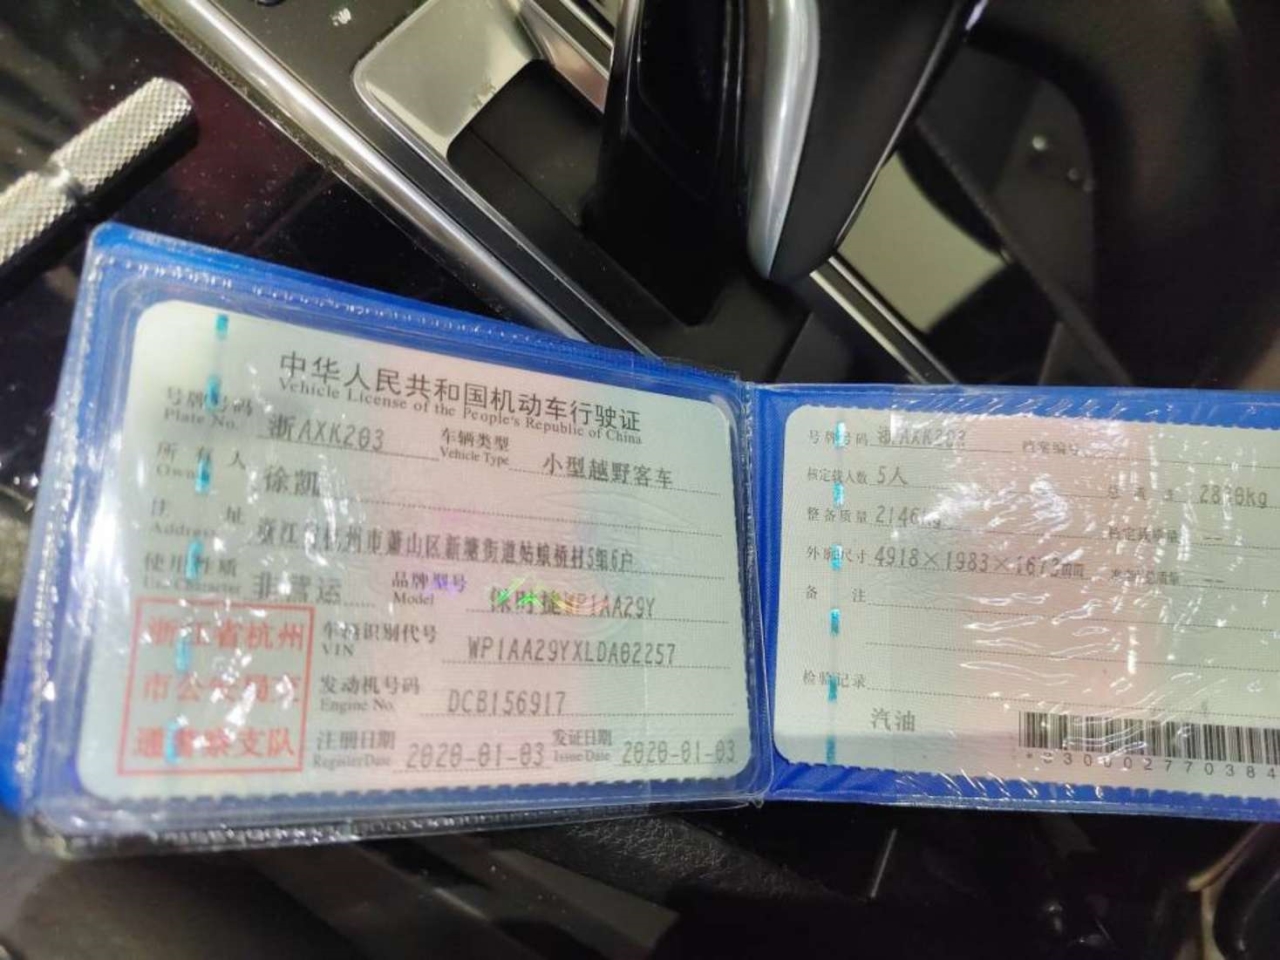 中华人民共和国机动车行驶证
Vehicle License of the People's Republic of China
号牌号码 浙AXK203 车辆类型 小型越野客车
Plate No. Vehicle Type
所有人 徐凯
Owner
住址 浙江省杭州市萧山区新塘街道姑娘桥村5组6户
Address
使用性质 非营运 品牌型号 保时捷WP1AA29Y
Use Character Model
浙江省杭州市公安局交通警察支队
车辆识别代号 WP1AA29YXLDA02257
VIN
发动机号码 DCB156917
Engine No.
注册日期 2020-01-03 发证日期 2020-01-03
Register Date Issue Date
号牌号码 浙AXK203 档案编号
核定载人数 5人 总质量
整备质量 2146kg 核定载质量 --
外廓尺寸 4918×1983×1673mm --
备注
检验记录
汽油